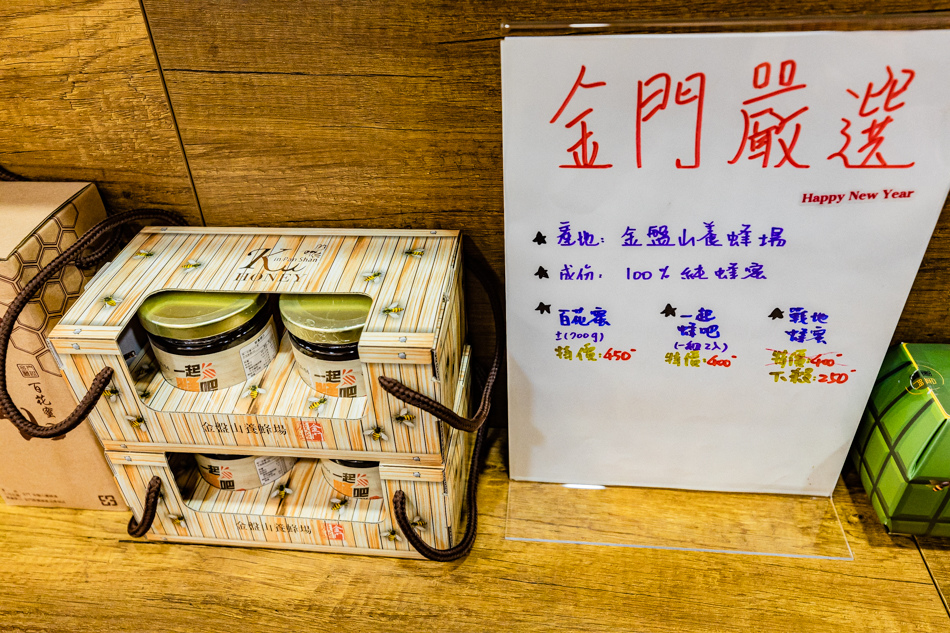 金門嚴選
Happy New Year
★ 產地: 金盤山養蜂場
★ 成份: 100% 純蜂蜜
★ 百花蜜
±(700g)
特價:450
★ 一起
蜂吧
(一組2入)
特價:400
★ 戰地
蜂蜜
特價:400
下殺:250
Kin Pan Shan
HONEY
一起
吧
一起
吧
金盤山養蜂場
一起
吧
一起
吧
金盤山養蜂場
百花蜜